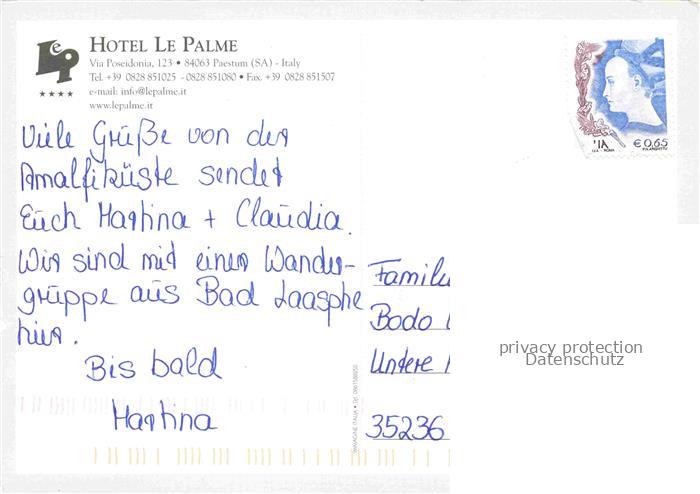 HOTEL LE PALME
Via Poseidonia, 123 • 84063 Paestum (SA) - Italy
Tel. +39 0828 851025 - 0828 851080 • Fax. +39 0828 851507
★★★★
e-mail: info@lepalme.it
www.lepalme.it
Viele Grüße von der
Amalfiküste sendet
Euch Martina + Claudia.
Wir sind mit einer Wander-
gruppe aus Bad Laasphe
hier.
Bis bald
Martina
€ 0,65
Bodo
Untere
35236
privacy protection
Datenschutz